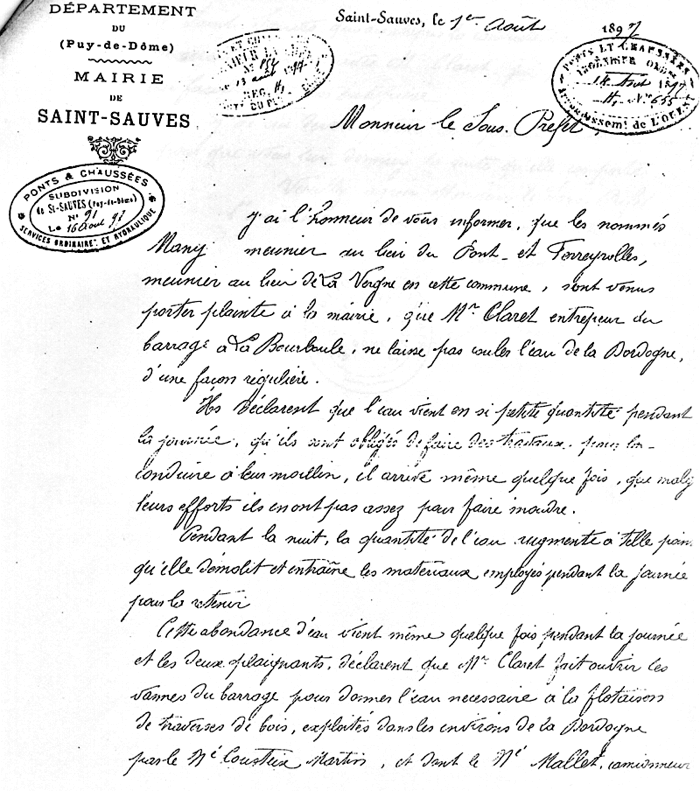 DÉPARTEMENT
DU
(Puy-de-Dôme)
MAIRIE
DE
SAINT-SAUVES
Saint-Sauves, le 1er Août 1897
PONTS & CHAUSSÉES
SUBDIVISION
de St-SAUVES (Puy-de-Dôme)
N° 91
Le 16 Août 97
SERVICES ORDINAIRE, ET HYDRAULIQUE
PONTS ET CHAUSSÉES
INGÉNIEUR ORDRE
14 Août 1897
N° 655
Arrondissemt. de L'OUEST
Monsieur le Sous-Préfet,
j'ai l'honneur de vous informer, que les nommés
Many meunier au lieu du Pont - et Ferreyrolles,
meunier au lieu de La Vergne en cette commune, sont venus
porter plainte à la mairie, que Mr Claret entrepeur du
barrage à La Bourboule, ne laisse pas couler l'eau de la Dordogne,
d'une façon régulière.
Ils déclarent que l'eau vient en si petite quantité pendant
la journée, qu'ils sont obligés de faire des travaux pour la
conduire à leur moulin, il arrive même quelque fois, que malg
leurs efforts ils en ont pas assez pour faire moudre.
Pendant la nuit, la quantité de l'eau augmente à telle poin
qu'elle démolit et entraîne les matériaux employés pendant la journée
pour la retenir
Cette abondance d'eau vient même quelque fois pendant la journée
et les deux plaignants, déclarent que Mr Claret fait ouvrir les
vannes du barrage pour donner l'eau necessaire à la flotaison
de traverses de bois, exploités dans les environs de la Dordogne
par le Né Cousteix Martin, et dont le Né Mallet, camionneur